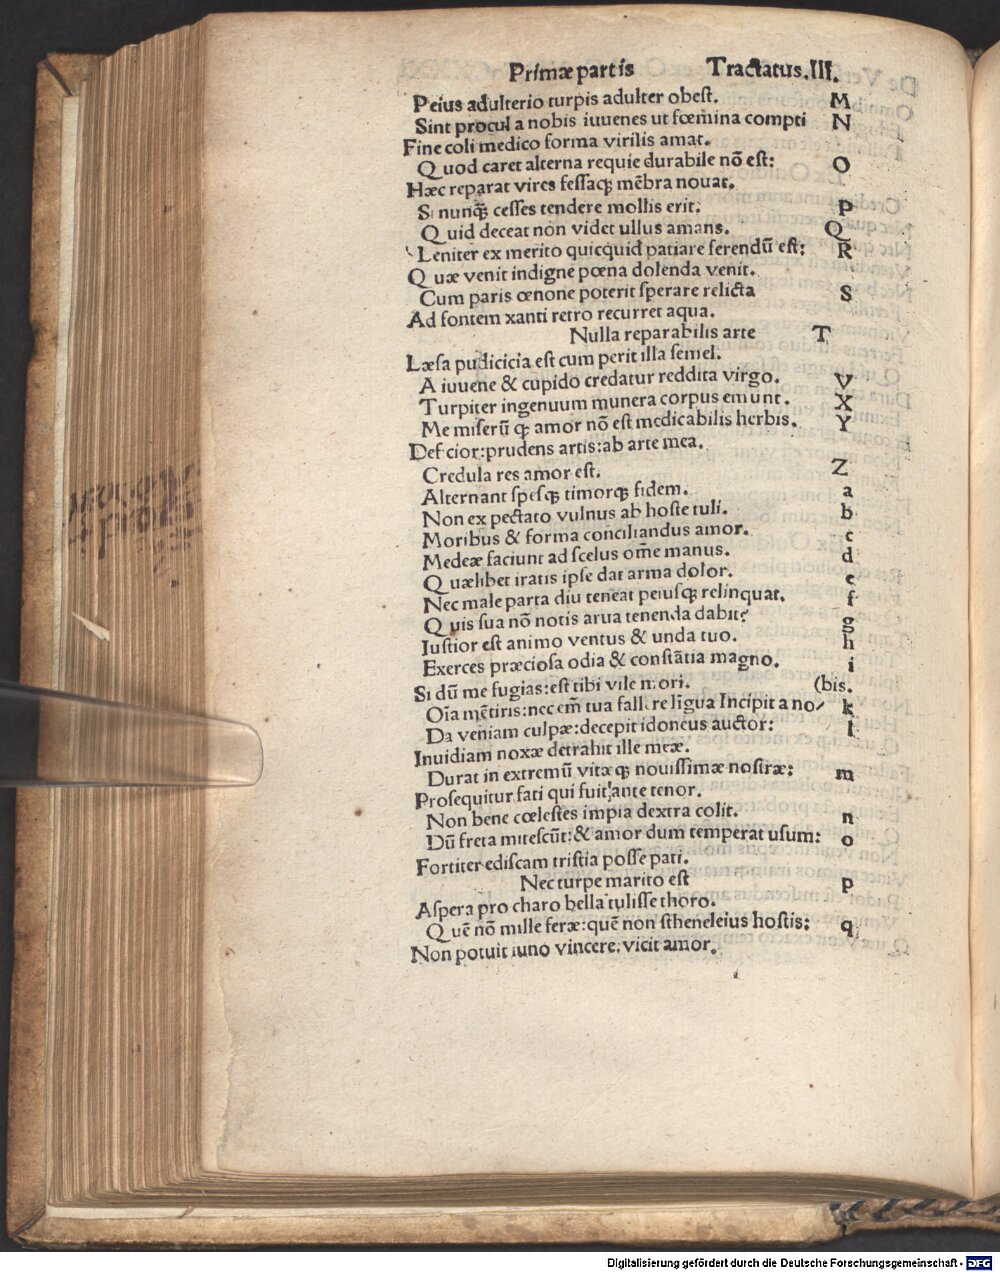 Primæ partis Tractatus.III.
Peius adulterio turpis adulter obest. M
Sint procul a nobis iuuenes ut fœmina compti N
Fine coli medico forma virilis amat.
Quod caret alterna requie durabile nō est: O
Hæc reparat vires fessaqȝ mēbra nouat.
Si nunq̄ȝ cesses tendere mollis erit. P
Quid deceat non videt ullus amans. Q
Leniter ex merito quicquid patiare ferendū est: R
Quæ venit indigne pœna dolenda venit.
Cum paris œnone poterit sperare relicta S
Ad fontem xanti retro recurret aqua.
Nulla reparabilis arte T
Læsa pudicicia est cum perit illa semel.
A iuuene & cupido credatur reddita virgo. V
Turpiter ingenuum munera corpus emunt. X
Me miserū qȝ amor nō est medicabilis herbis. Y
Deficior: prudens artis: ab arte mea.
Credula res amor est. Z
Alternant spesqȝ timorqȝ fidem. a
Non expectato vulnus ab hoste tuli. b
Moribus & forma conciliandus amor. c
Medeæ faciunt ad scelus om̄e manus. d
Quælibet iratis ipse dat arma dolor. e
Nec male parta diu teneat peiusqȝ relinquat. f
Quis sua nō notis arua tenenda dabit? g
Iustior est animo ventus & unda tuo. h
Exerces præciosa odia & constātia magno. i
Si dū me fugias: est tibi vile mori. (bis.
Oīa mētiris: nec em̄ tua fallere līgua Incipit a no/ k
Da veniam culpæ: decepit idoneus auctor: l
Inuidiam noxæ detrahit ille meæ.
Durat in extremū vitæqȝ nouissimæ nostræ: m
Prosequitur fati qui fuit ante tenor.
Non bene cœlestes impia dextra colit. n
Dū freta mitescūt: & amor dum temperat usum: o
Fortiter ediscam tristia posse pati.
Nec turpe marito est p
Aspera pro charo bella tulisse thoro.
Quē nō mille feræ: quē non stheneleius hostis: q
Non potuit iuno vincere, vicit amor.
Digitalisierung gefördert durch die Deutsche Forschungsgemeinschaft - DFG